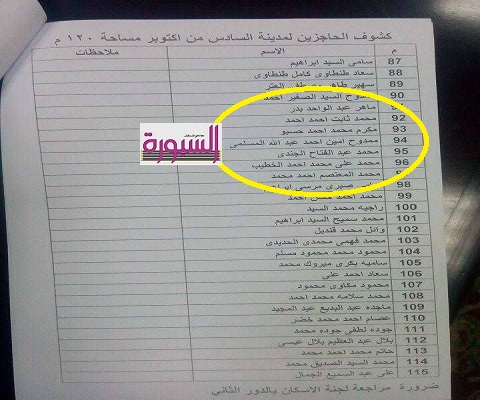 كشوف الحاجزين لمدينة السادس من اكتوبر مساحة ١٢٠ م
م الاسم ملاحظات
87 سامى السيد ابراهيم
88 سعاد طنطاوى كامل طنطاوى
89 سهير طاهر مصطفى العتر
90 ممدوح السيد الصغير احمد
ماهر عبد الواحد بدر
92 محمد ثابت احمد احمد
93 مكرم محمد احمد حسبو
94 ممدوح امين احمد عبد الله المسلمى
95 محمد عبد الفتاح الجندى
96 محمد على محمد احمد الخطيب
محمد المعتصم احمد محمد
98 صبرى مرسى
99 محمد احمد حسن احمد
100 راجيه محمد السيد
101 محمد سميح السيد ابراهيم
102 وائل محمد قنديل
103 محمد فهمى محمدى الحديدى
104 محمود محمد محمود مسلم
105 ساميه بكرى مبروك محمد
106 سعاد احمد على
107 محمود مكاوى محمود
108 محمد سلامه محمد احمد
109 ماجده عبد البديع عبد المجيد
110 عصام احمد محمد خضر
111 جوده لطفى جوده محمد
112 بلال عبد العظيم بلال عيسى
113 حاتم محمد احمد محمد
114 محمد السيد الصديق محمد
115 على عبد السميع الجمال
ضرورة مراجعة لجنة الاسكان بالدور الثانى
السبورة